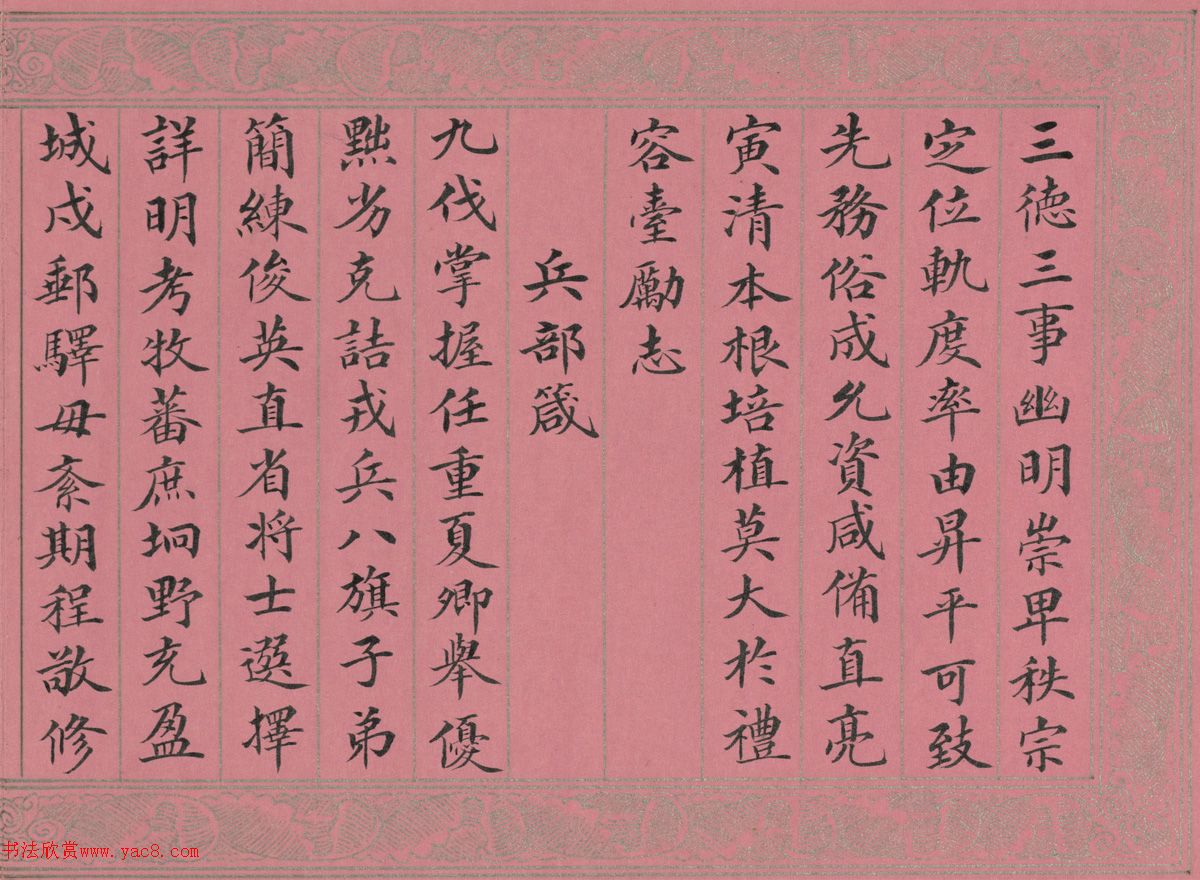 三徳三事幽明崇卑秩宗
定位軌度率由昇平可致
先務俗成允資咸備直亮
寅清本根培植莫大於禮
容臺勵志
兵部箴
九伐掌握任重夏卿舉優
黜劣克詰戎兵八旗子弟
簡練俊英直省将士選擇
詳明考牧蕃庶坰野充盈
城戍郵驛毋紊期程敬修
书法欣赏www.yac8.com